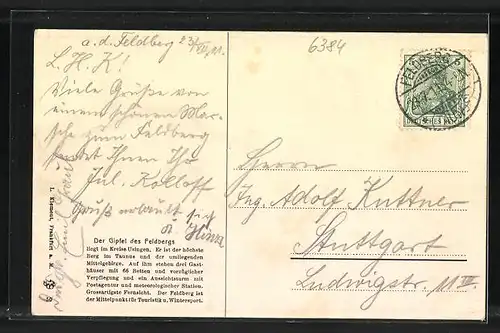 a. d. Feldberg 23/VII. 11.
6384
L. H. K!
Viele Grüße von
einem schönen Mar-
sche zum Feldberg
sendet Ihnen Ihr
Jul. Kolloff
Gruß erlaubt sich
FELDBERG
5
DEUTSCHES REICH
Herrn
Ing. Adolf Kuttner
Stuttgart
Ludwigstr. 11 III.
Der Gipfel des Feldbergs
liegt im Kreise Usingen. Er ist der höchste
Berg im Taunus und der umliegenden
Mittelgebirge. Auf ihm stehen drei Gast-
häuser mit 66 Betten und vorzüglicher
Verpflegung und ein Aussichtsturm mit
Postagentur und meteorologischer Station.
Grossartigste Fernsicht. Der Feldberg ist
der Mittelpunkt für Touristik u. Wintersport.
L. Klement, Frankfurt a. M.